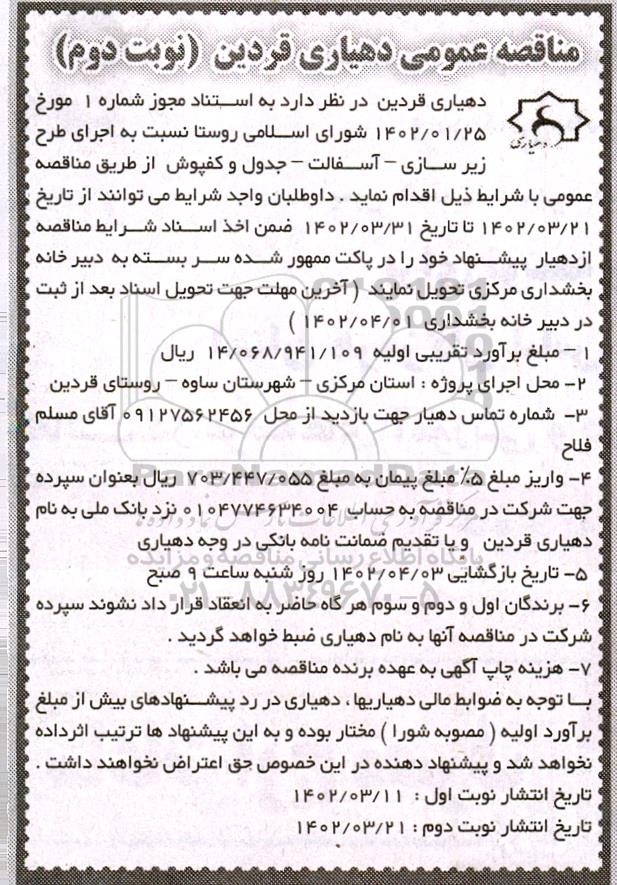 مناقصه عمومی دهیاری قردین (نوبت دوم)
دهیاری قردین در نظر دارد به استناد مجوز شماره 1 مورخ
۱۴۰۲/۰۱/۲۵ شورای اسلامی روستا نسبت به اجرای طرح
زیر سازی – آسفالت – جدول و کفپوش از طریق مناقصه
دهیاری
عمومی با شرایط ذیل اقدام نماید . داوطلبان واجد شرایط می توانند از تاریخ
۱۴۰۲/۰۳/۲۱ تا تاریخ ۱۴۰۲/۰۳/۳۱ ضمن اخذ اسناد شرایط مناقصه
ازدهیار پیشنهاد خود را در پاکت ممهور شده سر بسته به دبیر خانه
بخشداری مرکزی تحویل نمایند ( آخرین مهلت جهت تحویل اسناد بعد از ثبت
در دبیر خانه بخشداری ۱۴۰۲/۰۴/۰۱ )
۱ – مبلغ برآورد تقریبی اولیه ۱۴/۰۶۸/۹۴۱/۱۰۹ ریال
۲– محل اجرای پروژه : استان مرکزی – شهرستان ساوه – روستای قردین
۳– شماره تماس دهیار جهت بازدید از محل ۰۹۱۲۷۵۶۲۴۵۶ آقای مسلم
فلاح
۴– واریز مبلغ ۵٪ مبلغ پیمان به مبلغ ۷۰۳/۴۴۷/۰۵۵ ریال بعنوان سپرده
جهت شرکت در مناقصه به حساب ۰۱۰۴۷۷۴۶۳۴۰۰۴ نزد بانک ملی به نام
دهیاری قردین و یا تقدیم ضمانت نامه بانکی در وجه دهیاری
۵– تاریخ بازگشایی ۱۴۰۲/۰۴/۰۳ روز شنبه ساعت ۹ صبح
۶– برندگان اول و دوم و سوم هر گاه حاضر به انعقاد قرار داد نشوند سپرده
شرکت در مناقصه آنها به نام دهیاری ضبط خواهد گردید .
۷– هزینه چاپ آگهی به عهده برنده مناقصه می باشد .
با توجه به ضوابط مالی دهیاریها ، دهیاری در رد پیشنهادهای بیش از مبلغ
برآورد اولیه ( مصوبه شورا ) مختار بوده و به این پیشنهاد ها ترتیب اثرداده
نخواهد شد و پیشنهاد دهنده در این خصوص حق اعتراض نخواهند داشت .
تاریخ انتشار نوبت اول : ۱۴۰۲/۰۳/۱۱
تاریخ انتشار نوبت دوم : ۱۴۰۲/۰۳/۲۱
ParsNamadData
پایگاه اطلاع رسانی مناقصه و مزایده
۰۲۱-۸۸۳۴۹۶۷۰-۵